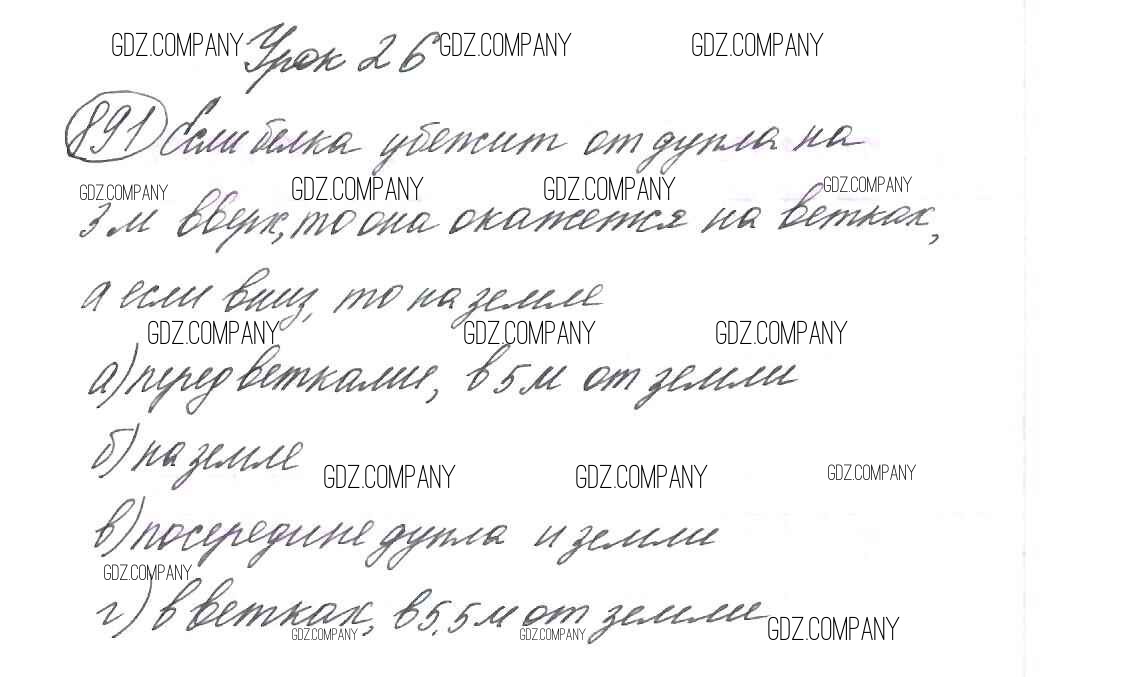 GDZ.COMPANY Урок 26 GDZ.COMPANY GDZ.COMPANY
891 Если белка убежит от дупла на
GDZ.COMPANY GDZ.COMPANY GDZ.COMPANY GDZ.COMPANY
3 м вверх, то она окажется на ветках,
а если вниз, то на земле
GDZ.COMPANY GDZ.COMPANY GDZ.COMPANY
а) перед ветками, в 5 м от земли
б) на земле
GDZ.COMPANY GDZ.COMPANY GDZ.COMPANY
в) посередине дупла и земли
GDZ.COMPANY
г) в ветках, в 5,5 м от земли
GDZ.COMPANY GDZ.COMPANY GDZ.COMPANY